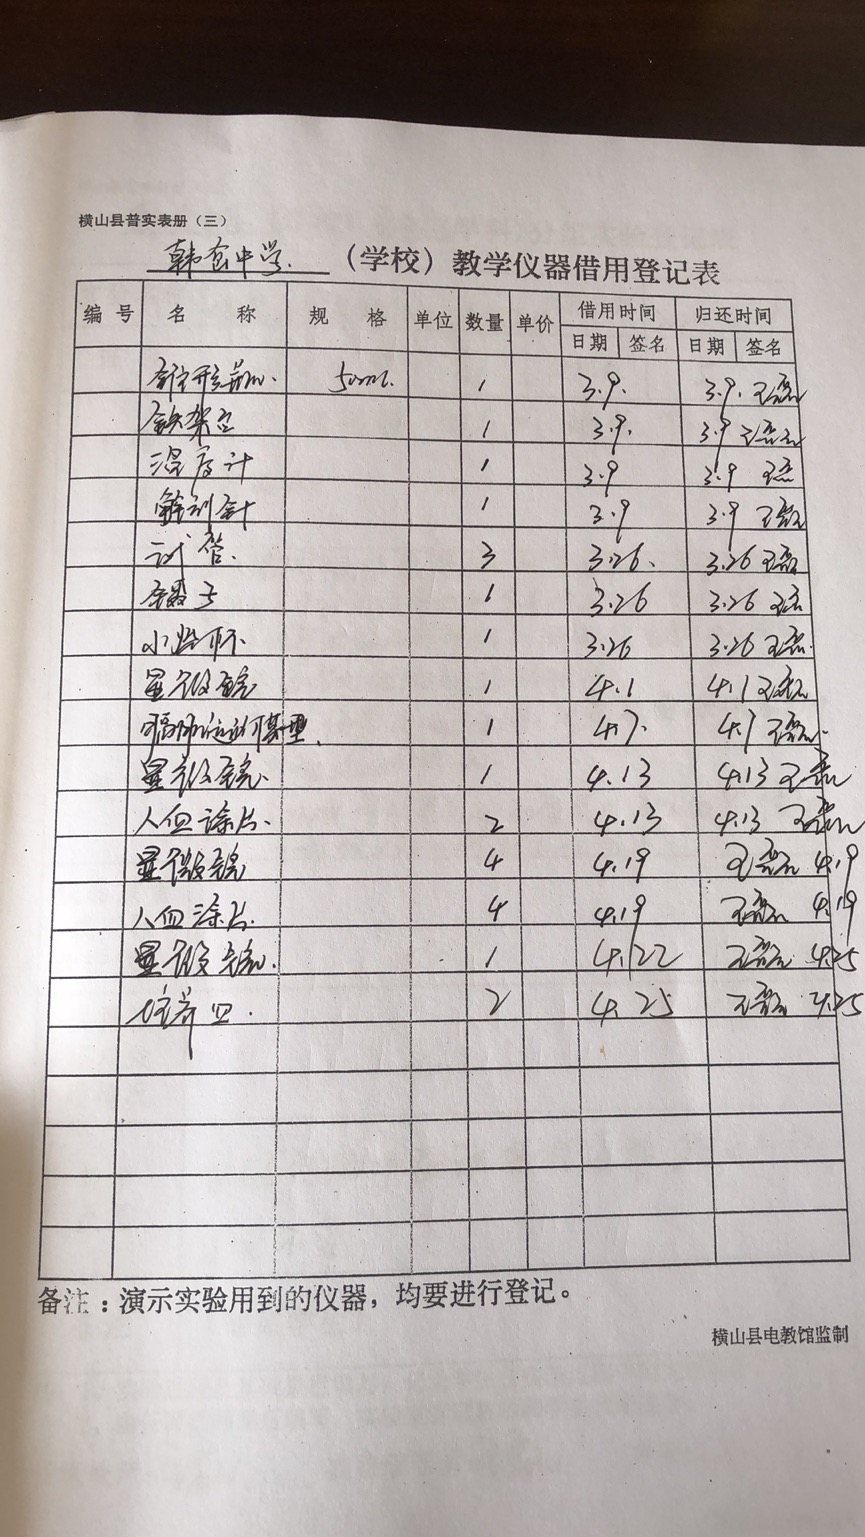 横山县普实表册（三）
韩岔中学 （学校）教学仪器借用登记表
编号 名称 规格 单位 数量 单价 借用时间 归还时间
日期 签名 日期 签名
锥形瓶 50ml 1 3.9. 3.9.
铁架台 1 3.9. 3.9
温度计 1 3.9 3.9
解剖针 1 3.9 3.9
试管. 3 3.26. 3.26
镊子 1 3.26 3.26
小烧杯 1 3.26 3.26
显微镜 1 4.1 4.1
模型. 1 4.7. 4.7
显微镜. 1 4.13 4.13
人血涂片. 2 4.13 4.13
显微镜 4 4.19 4.19
人血涂片. 4 4.19 4.19
显微镜. 1 4.22 4.25
培养皿. 2 4.25 4.25
备注：演示实验用到的仪器，均要进行登记。
横山县电教馆监制